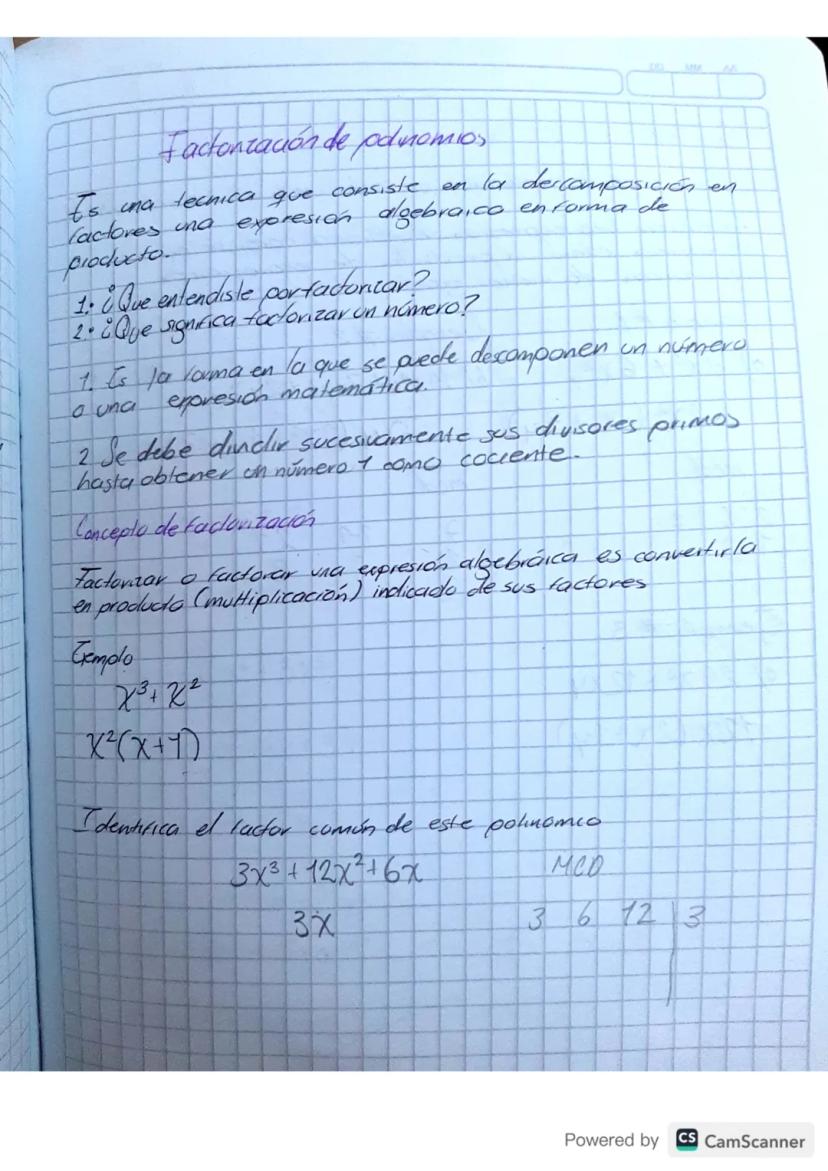 Factorización de polinomios
Es una tecnica que consiste en la descomposición en
factores una expresión algebraica en forma de
producto.
1. ¿Que entendiste por factorizar?
2. ¿Que significa factorizar un número?
1. Es la forma en la que se puede descomponen un número
o una expresión matemática.
2 Se debe dividir sucesivamente sus divisores primos
hasta obtener un número 1 como cociente.
Concepto de factorización
Factorizar o factorar una expresión algebráica es convertirla
en producto (multiplicación) indicado de sus factores
Ejemplo
x³+x²
x²(x+1)
Identifica el factor común de este polinomio
3x³+12x²+6x MCD
3x 3 6 12 | 3
Powered by CS CamScanner